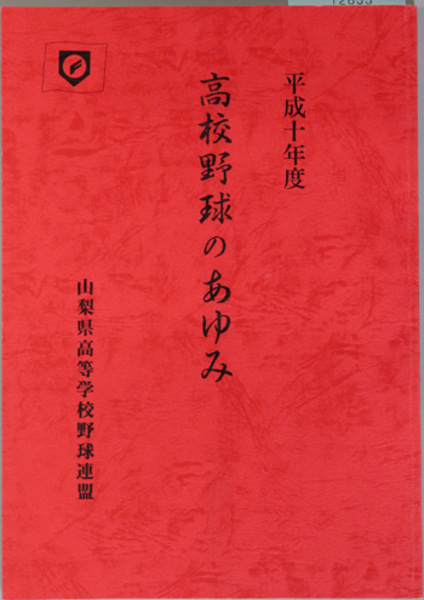 平成十年度
高校野球のあゆみ
山梨県高等学校野球連盟
F